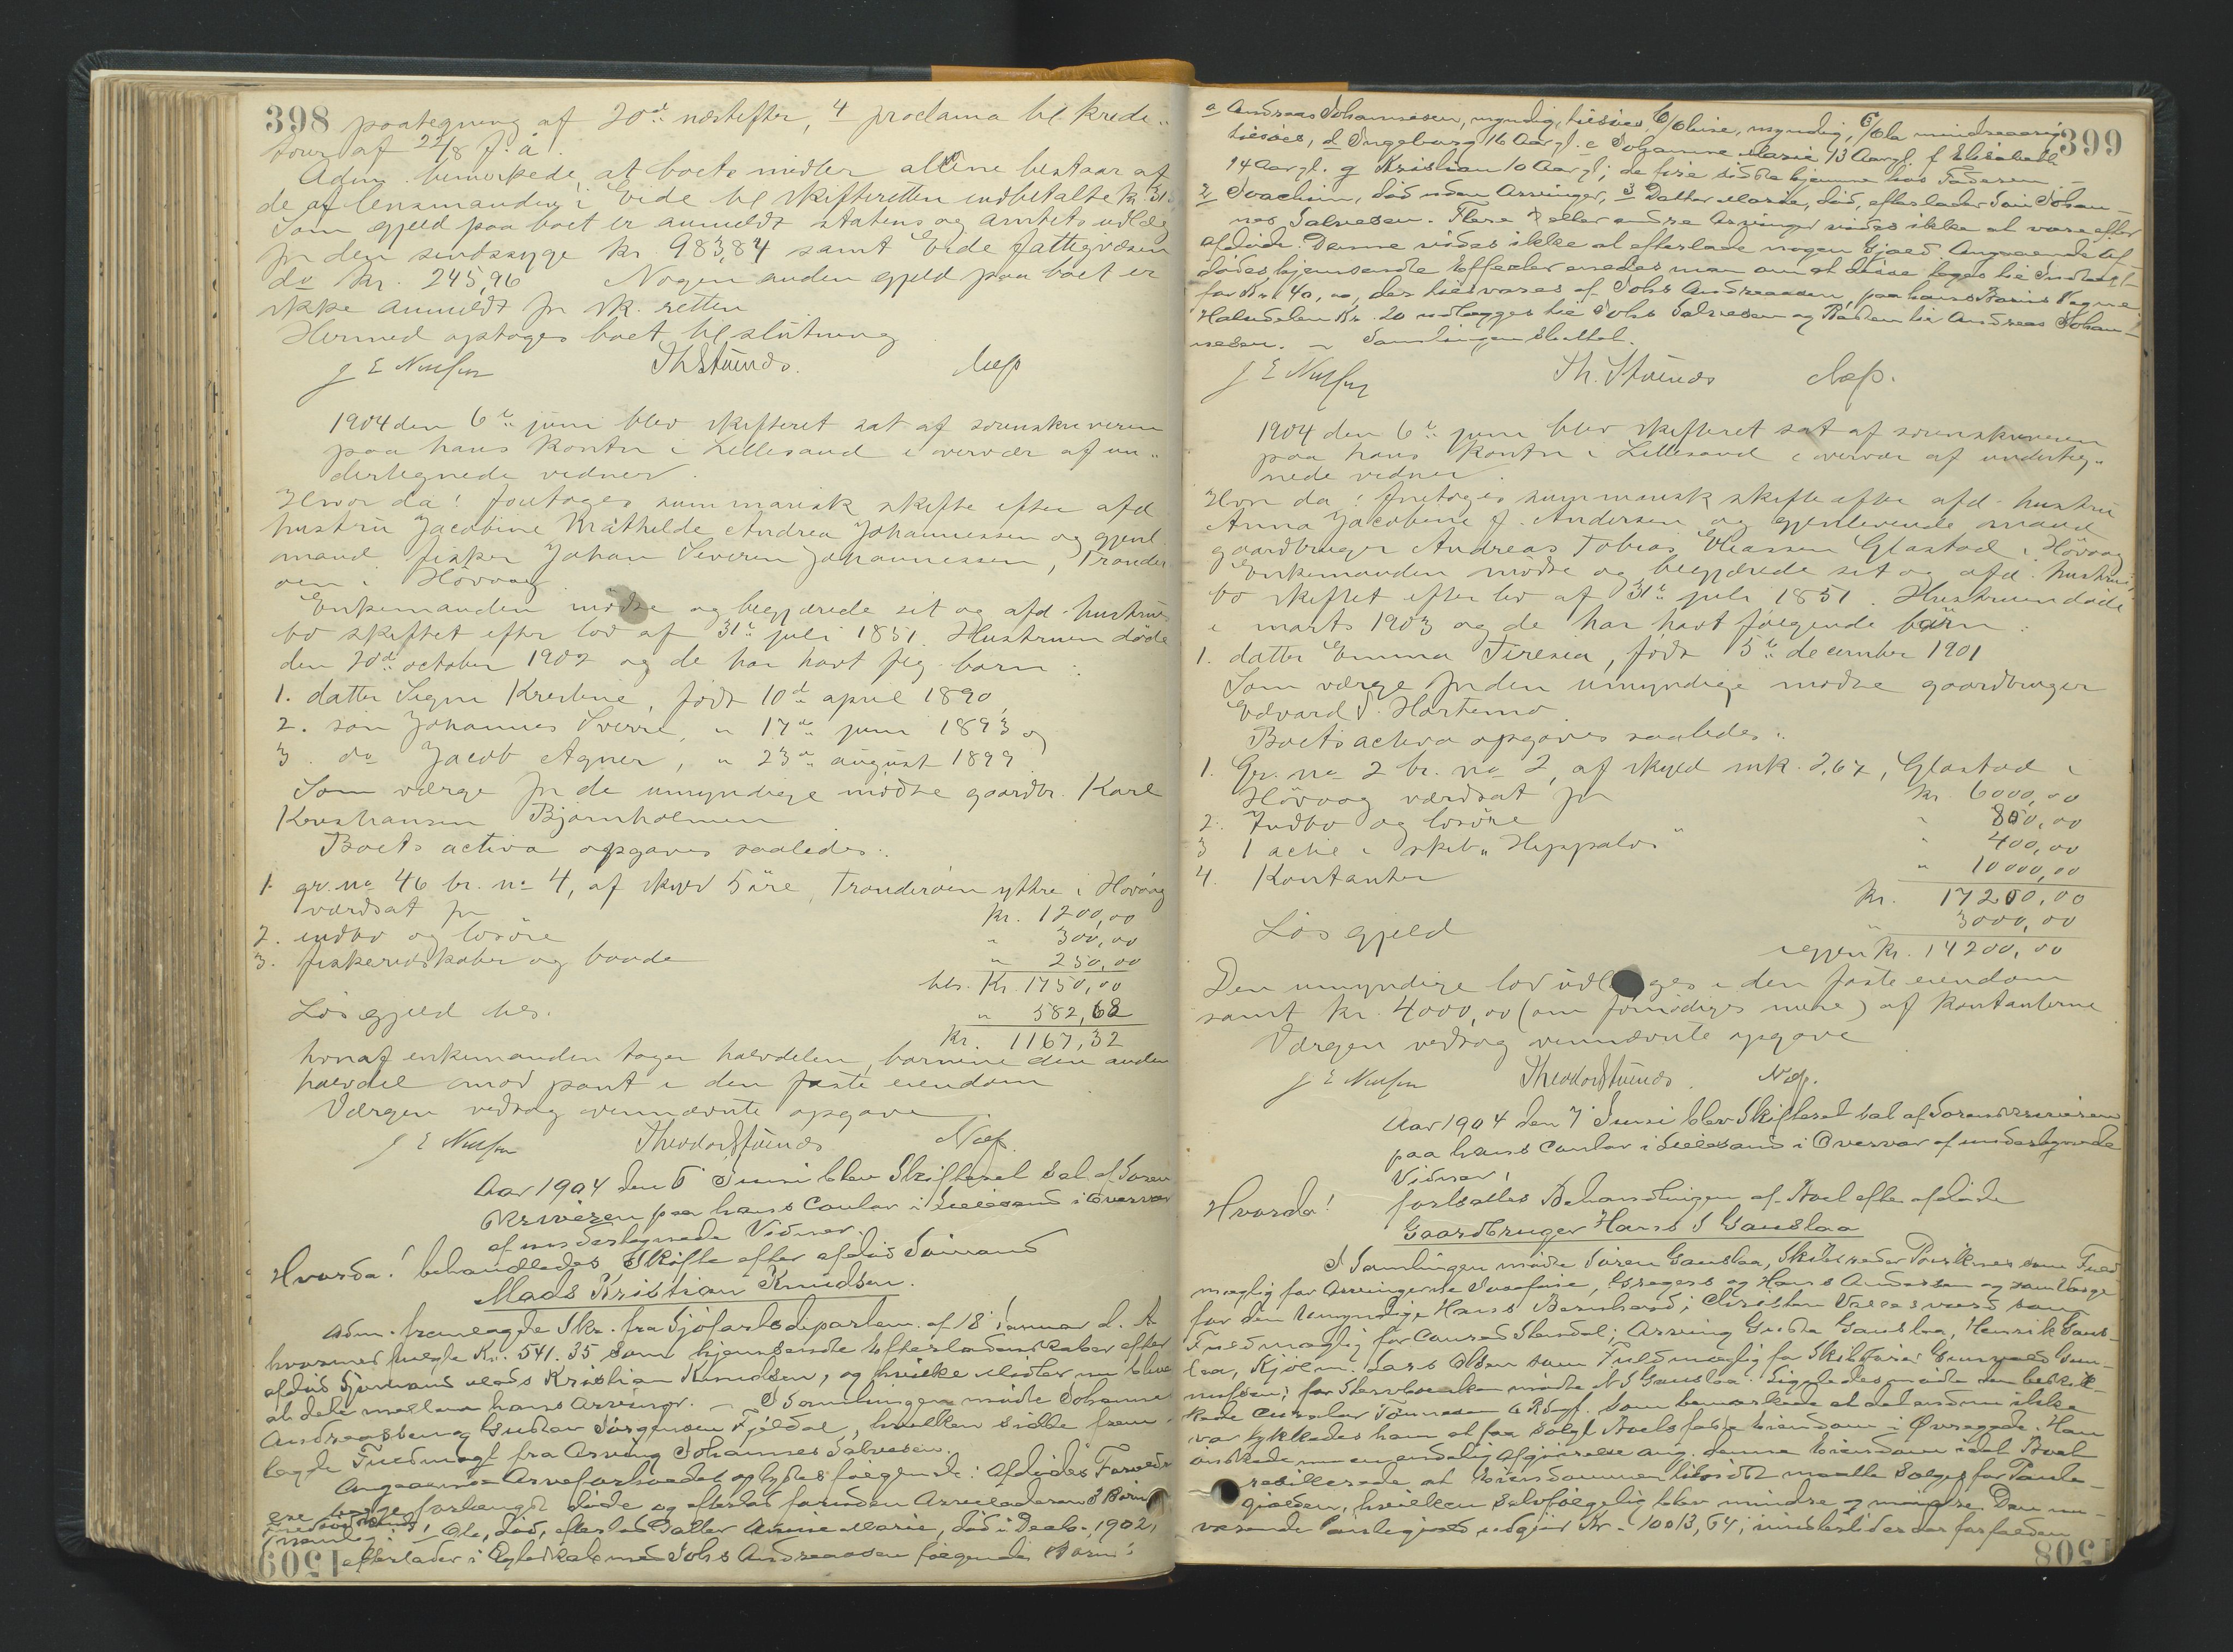 398 paategning af 20de næstefter, 4 proclama til kredi„
torer af 22/8 f. å.
Adm. bemerkede, at boets midler allene bestaar af
de af lensmanden i Eide til skifteretten indbetalte kr. 31.
Som gjeld paa boet er anmeldt statens og amtets udlæg
for den sindssyge kr. 983,84 samt Eide fattigvæsen
do kr. 245,96 Nogen anden gjeld paa boet er
ikke anmeldt for sk. retten
Hermed optoges boet til slutning
J E Th Stuends.
1904 den 6te juni blev skifteret sat af sorenskriveren
paa hans kontor i Lillesand i overvær af un„
dertegnede vidner.
Hvor da! foretoges summarisk skifte efter afd
hustru Jacobine Mathilde Andrea Johannessen og gjenl.
mand fisker Johan Severin Johannessen, Trander
øen i Høvaag
Enkemanden mødte og begjærede sit og afd. hustrus
bo skiftet efter lov af 31te juli 1851. Hustruen døde
den 20de october 1902 og de har havt føg. barn:
1. datter Signe Kristine, født 10de april 1890,
2. søn Johannes Sverre, „ 17de juni 1893 og
3. do Jacob Agner, „ 23de august 1899
Som værge for de umyndige mødte gaardbr. Karl
Kristiansen Bjørnholmen
Boets activa opgaves saaledes:
1. gr. no 46 br. no 4, af skyld 5 øre, Tranderøen yttre i Høvåg
værdsat for kr. 1200,00
2. indbo og løsøre „ 300,00
3. fiskeredskaber og baade „ 250,00
tils. Kr. 1750,00
Løs gjeld tils. „ 582,68
Kr. 1167,32
hvoraf enkemanden tager halvdelen, børnene den anden
halvdel mod pant i den faste eiendom
Værgen vedtog ovennævnte opgave
J E Theodor Stuends
Aar 1904 den 6 Juni blev Skifteret sat af Soren
skriveren paa hans Contor i Lillesand i Overvær
af undertegnede Vidner.
Hvorda! behandledes Skifte efter afdød Sømand
Mads Kristian Knudsen.
Adm. fremlagde Skr. fra Sjøfartsdepartem. af 18 Januar d. A.
hvormed fulgte Kr. 541.35 som hjemsendte Efterladenskaber efter
afdød Sjømand Mads Kristian Knudsen, og hvilke Midler nu blive
at dele mellem hans Arvinger. — I Samlingen mødte Johannes
Andreassen og Gustav Jørgensen Fjeldal, hvilken sidste frem-
lagde Fuldmagt fra Arving Johannes Salvesen.
Angaaende Arveforholdet oplystes følgende: Afdødes Forældre
ere begge forlængst døde og efterlod foruden Arveladeren 3 Børn
nemlig: 1 Ole, død, efterlod Datter Anne Marie, død i Decb. 1902,
efterlader i Egteskab med Johs Andreassen følgende Børn:
1509
399
a Andreas Johannesen, myndig, tilsøes, b/ Oline, myndig, c/ Ola mindreaarig
tilsøes, d Ingeborg 16 Aar gl. e Johanne Marie 13 Aar gl. f Elisabeth
14 Aar gl. g Kristian 10 Aar gl; de fire sidste hjemme hos Faderen. —
2 Joachim, død uden Arvinger, 3 Datter Marie, død, efterlader Søn Johan-
nes Salvesen. Flere eller andre Arvinger vides ikke at være efter
afdøde. Denne vides ikke at efterlade nogen Gjæld. Angaaende Af-
dødes hjemsendte Effecter enedes man om at disse toges til Indtægt
for Kr. 40,00, der tilsvares af Johs Andreassen, paa hans Børns Vegne
Halvdelen Kr. 20 udlægges til Johs Salvesen og Resten til Andreas Johan-
nesen. — Samlingen sluttet.
J E Th. Stuends
1904 den 6te juni blev skifteret sat af sorenskriveren
paa hans kontor i Lillesand i overvær af underteg„
nede vidner.
Hvor da! foretoges summarisk skifte efter afd. hustru
Anna Jacobine J. Andersen og gjenlevende mand
gaardbruger Andreas Tobias Glastad i Høvaag
Enkemanden mødte og begjærede sit og afd. hustrus
bo skiftet efter lov af 31te juli 1851. Hustruen døde
i marts 1903 og de har havt følgende børn:
1. datter Emma Tiresia, født 5te december 1901
Som værge for den umyndige mødte gaardbruger
Edvard S. Hørtemo
Boets activa opgaves saaledes:
1. Gr. no 2 br. no 2, af skyld mk. 2,67, Glastad i
Høvaag værdsat for kr. 6000,00
2. Indbo og løsøre „ 800,00
3 1 actie i skib „Hippalos“ „ 400,00
4. Kontanter „ 10000,00
kr. 17200,00
Løs gjeld 3000,00
igjen kr. 14200,00
Den umyndige lod udlægges i den faste eiendom
samt kr. 4000,00 (om fornødiges mere) af kontanterne
Værgen vedtog ovennævnte opgave
J E Theodor Stuends.
Aar 1904 den 7 Juni blev Skifteret sat af Sorenskriveren
paa hans Contor i Lillesand i Overvær af undertegnede
Vidner!
Hvorda! fortsattes Behandlingen af Boet efter afdøde
Gaardbruger Hans S Gauslaa
I Samlingen mødte Søren Gauslaa, Skibsreder som Fuld
mægtig for Arvingerne Josefine, Gregers og Hans Andersen og som Værge
for den Umyndige Hans Bernhard; Christen som
Fuldmægtig for Conrad Stendal; Arving Gusta Gauslaa, Henrik Gaus-
laa, Kjølm. Lars Olsen som Fuldmægtig for Skibsfører Gun-
nufsen; for Stervboenken mødte N S Gauslaa. Ligeledes mødte den beskik-
kede Curator Tønnesen som bemærkede at det endnu ikke
var lykkedes ham at faa solgt Boets faste Eiendom i Øvregade. Han
ønskede nu en endelig Afgjørelse ang. denne Eiendom idet Boet
resikerede at Eiendommen tilsidst maatte sælges for Pante-
gjælden, hvilken selvfølgelig blev mindre og mindre. Den nu-
værende Pantegjæld udgjør Kr. 10013,64; imidlertid er der forfalden
1508